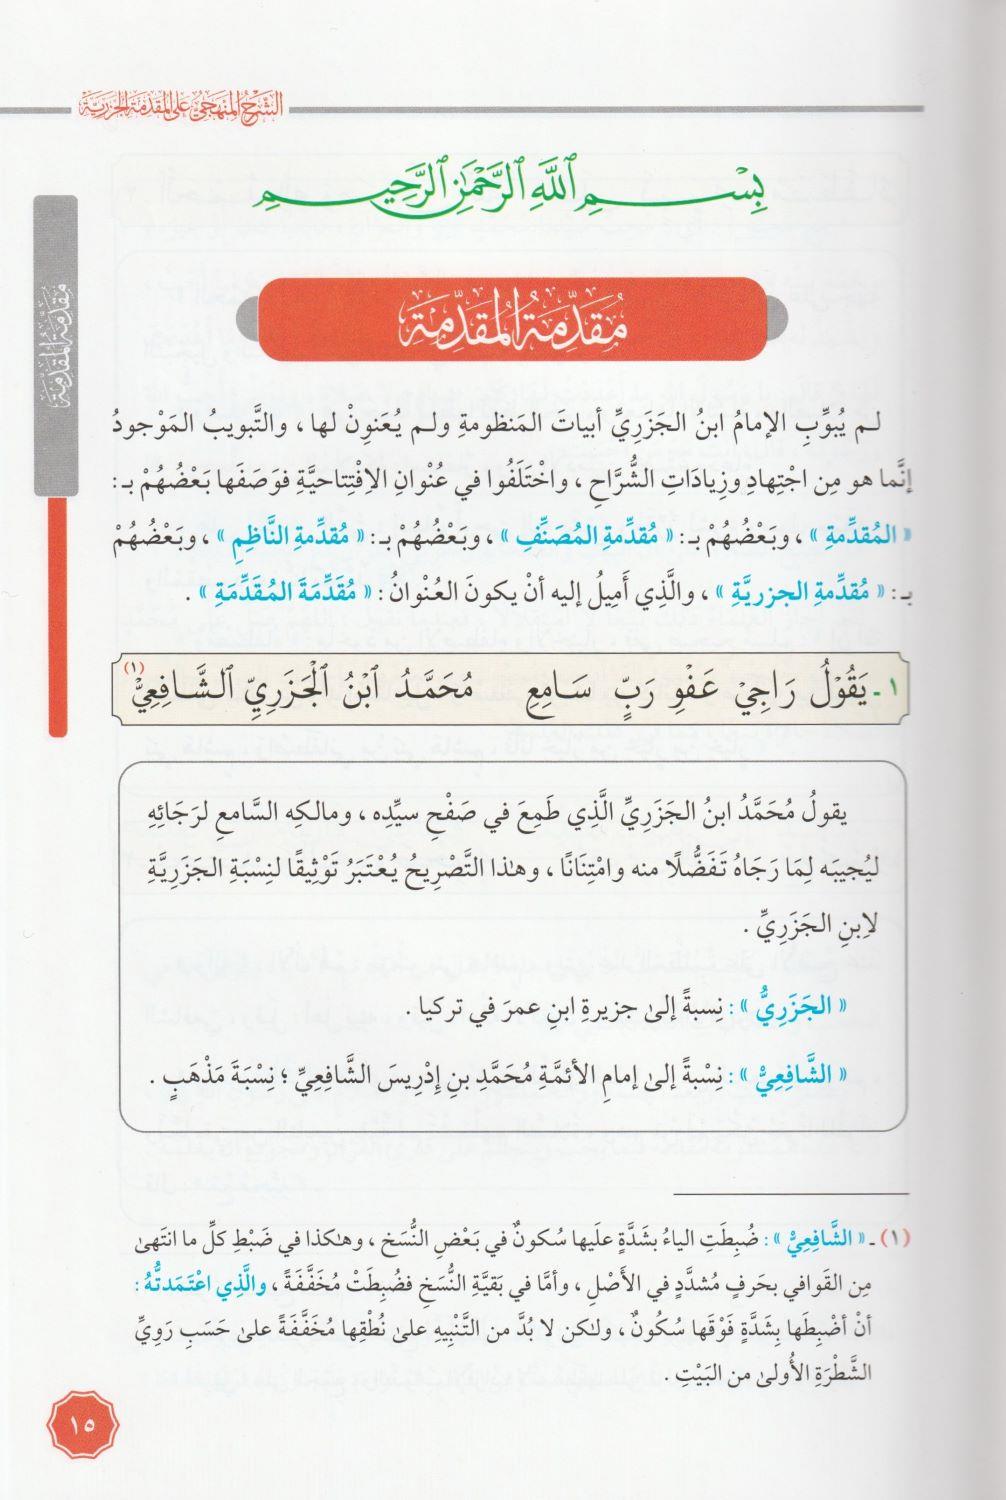 الشرح المنهجي على المقدمة الجزرية
بِسْمِ ٱللَّهِ ٱلرَّحْمَٰنِ ٱلرَّحِيمِ
مقدمة المقدمة
مُقَدِّمَةُ المُقَدِّمَة
لم يُبوِّبِ الإمامُ ابنُ الجَزَرِيِّ أبياتَ المَنظومةِ ولم يُعَنوِنْ لها ، والتَّبويبُ المَوْجودُ
إنَّما هو مِن اجْتِهادِ وزِياداتِ الشُّرَّاحِ ، واخْتَلَفُوا في عُنْوانِ الاِفْتِتاحيَّةِ فوَصَفَها بَعْضُهُمْ بـ :
« المُقدِّمةِ » ، وبَعْضُهُمْ بـ : « مُقدِّمةِ المُصَنِّفِ » ، وبَعْضُهُمْ بـ : « مُقدِّمةِ النَّاظِمِ » ، وبَعْضُهُمْ
بـ : « مُقدِّمةِ الجزريَّةِ » ، والَّذِي أَمِيلُ إليه أنْ يكونَ العُنْوانُ : « مُقَدِّمَةَ المُقَدِّمَةِ » .
١ - يَقُوْلُ رَاجِيْ عَفْوِ رَبٍّ سَامِعِ مُحَمَّدُ ٱبْنُ ٱلْجَزَرِيِّ ٱلشَّافِعِيّْ (١)
يقولُ مُحَمَّدُ ابنُ الجَزَرِيِّ الَّذِي طَمِعَ في صَفْحِ سيِّدِه ، ومالكِه السَّامعِ لرَجَائِهِ
ليُجيبَه لِمَا رَجَاهُ تَفَضُّلًا منه وامْتِنَانًا ، وهـٰذا التَّصْرِيحُ يُعْتَبَرُ تَوْثِيقًا لنِسْبَةِ الجَزَرِيَّةِ
لاِبنِ الجَزَرِيِّ .
« الجَزَرِيُّ » : نِسبةً إلىٰ جزيرةِ ابنِ عمرَ في تركيا .
« الشَّافِعِيّْ » : نِسْبةً إلىٰ إمامِ الأئمَّةِ مُحَمَّدِ بنِ إدْرِيسَ الشَّافِعِيِّ ؛ نِسْبَةَ مَذْهَبٍ .
(١) ـ « الشَّافِعِيّْ » : ضُبِطَتِ الياءُ بشَدَّةٍ علَيها سُكونٌ في بَعْضِ النُّسَخِ ، وهـٰكذا في ضَبْطِ كلِّ ما انتَهىٰ
مِن القَوافي بحَرفٍ مُشدَّدٍ في الأَصْلِ ، وأمَّا في بَقيَّةِ النُّسَخِ فضُبِطَتْ مُخَفَّفَةً ، والَّذِي اعْتَمَدتُّهُ :
أنْ أضْبِطَها بِشَدَّةٍ فَوْقَها سُكُونٌ ، ولـٰكن لا بُدَّ من التَّنْبِيهِ علىٰ نُطْقِها مُخَفَّفَةً علىٰ حَسَبِ رَوِيِّ
الشَّطْرَةِ الأُولىٰ من البَيْتِ .
١٥